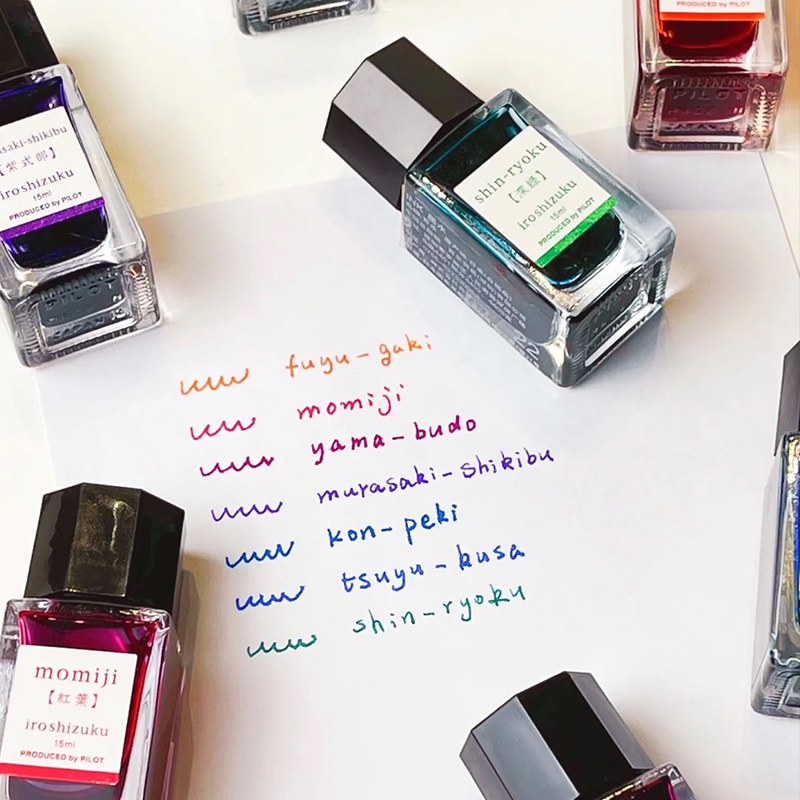 PRODUCED by PILOT
PILOT
-shikibu
【紫式部】
iroshizuku
15ml
PRODUCED by PILOT
PILOT
shin-ryoku
【深緑】
iroshizuku
15ml
PRODUCED by PILOT
fuyu-gaki
momiji
yama-budo
murasaki-shikibu
kon-peki
tsuyu-kusa
shin-ryoku
momiji
【紅葉】
iroshizuku
15ml
PRODUCED by PILOT